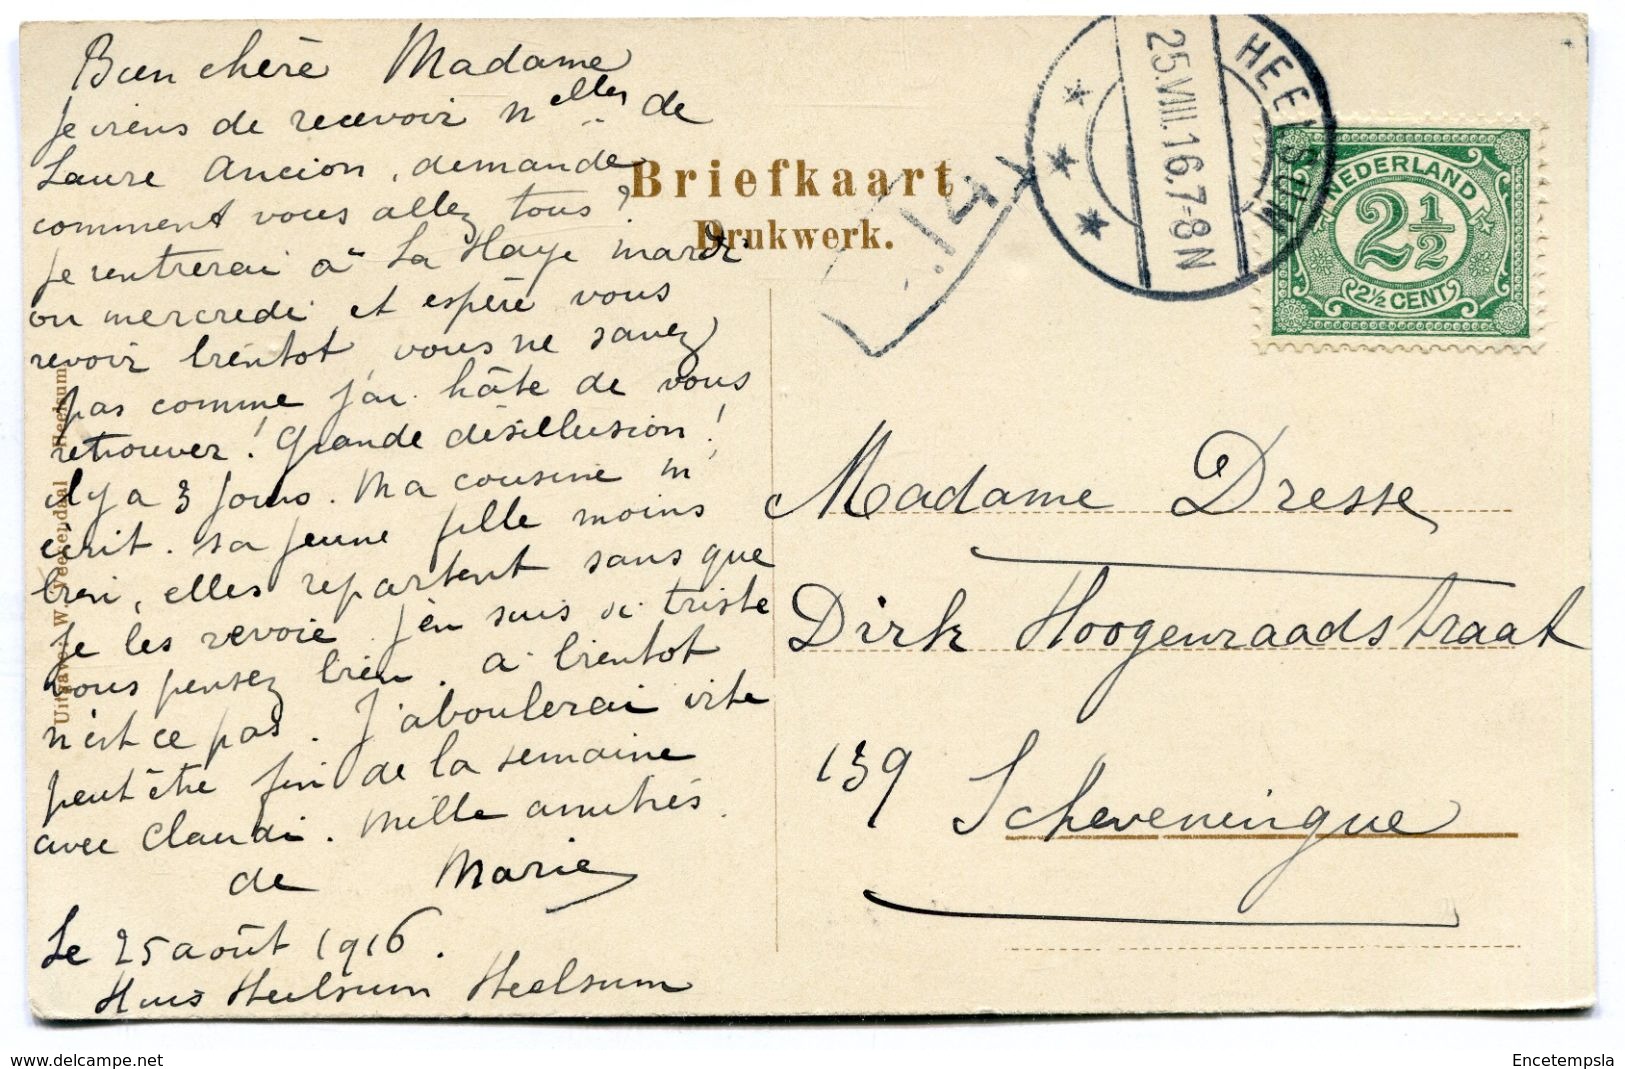 Bien chère Madame
Je viens de recevoir nelles de
Laure Ancion, demande
comment vous allez tous?
Je rentrerai à La Haye mardi
ou mercredi et espère vous
revoir bientot, vous ne savez
pas comme j'ai hâte de vous
retrouver! Grande désillusion!
il y a 3 jours. Ma cousine m'
écrit. sa jeune fille moins
bien, elles repartent sans que
je les revoie j'en suis si triste
vous pensez bien. à bientot
n'est ce pas. J'aboulerai vite
peut être fin de la semaine
avec Claudi. Mille amitiés.
de Marie
Le 25 août 1916.
Huis Heelsum Heelsum
Uitgave: W. Veenendaal Heelsum
Briefkaart
Drukwerk.
HEELSUM
25.VIII.16.7-8N
NEDERLAND
2½
2½ CENT
Madame Dresse
Dirk Hoogenraadstraat
139 Scheveningue
Encetempsla